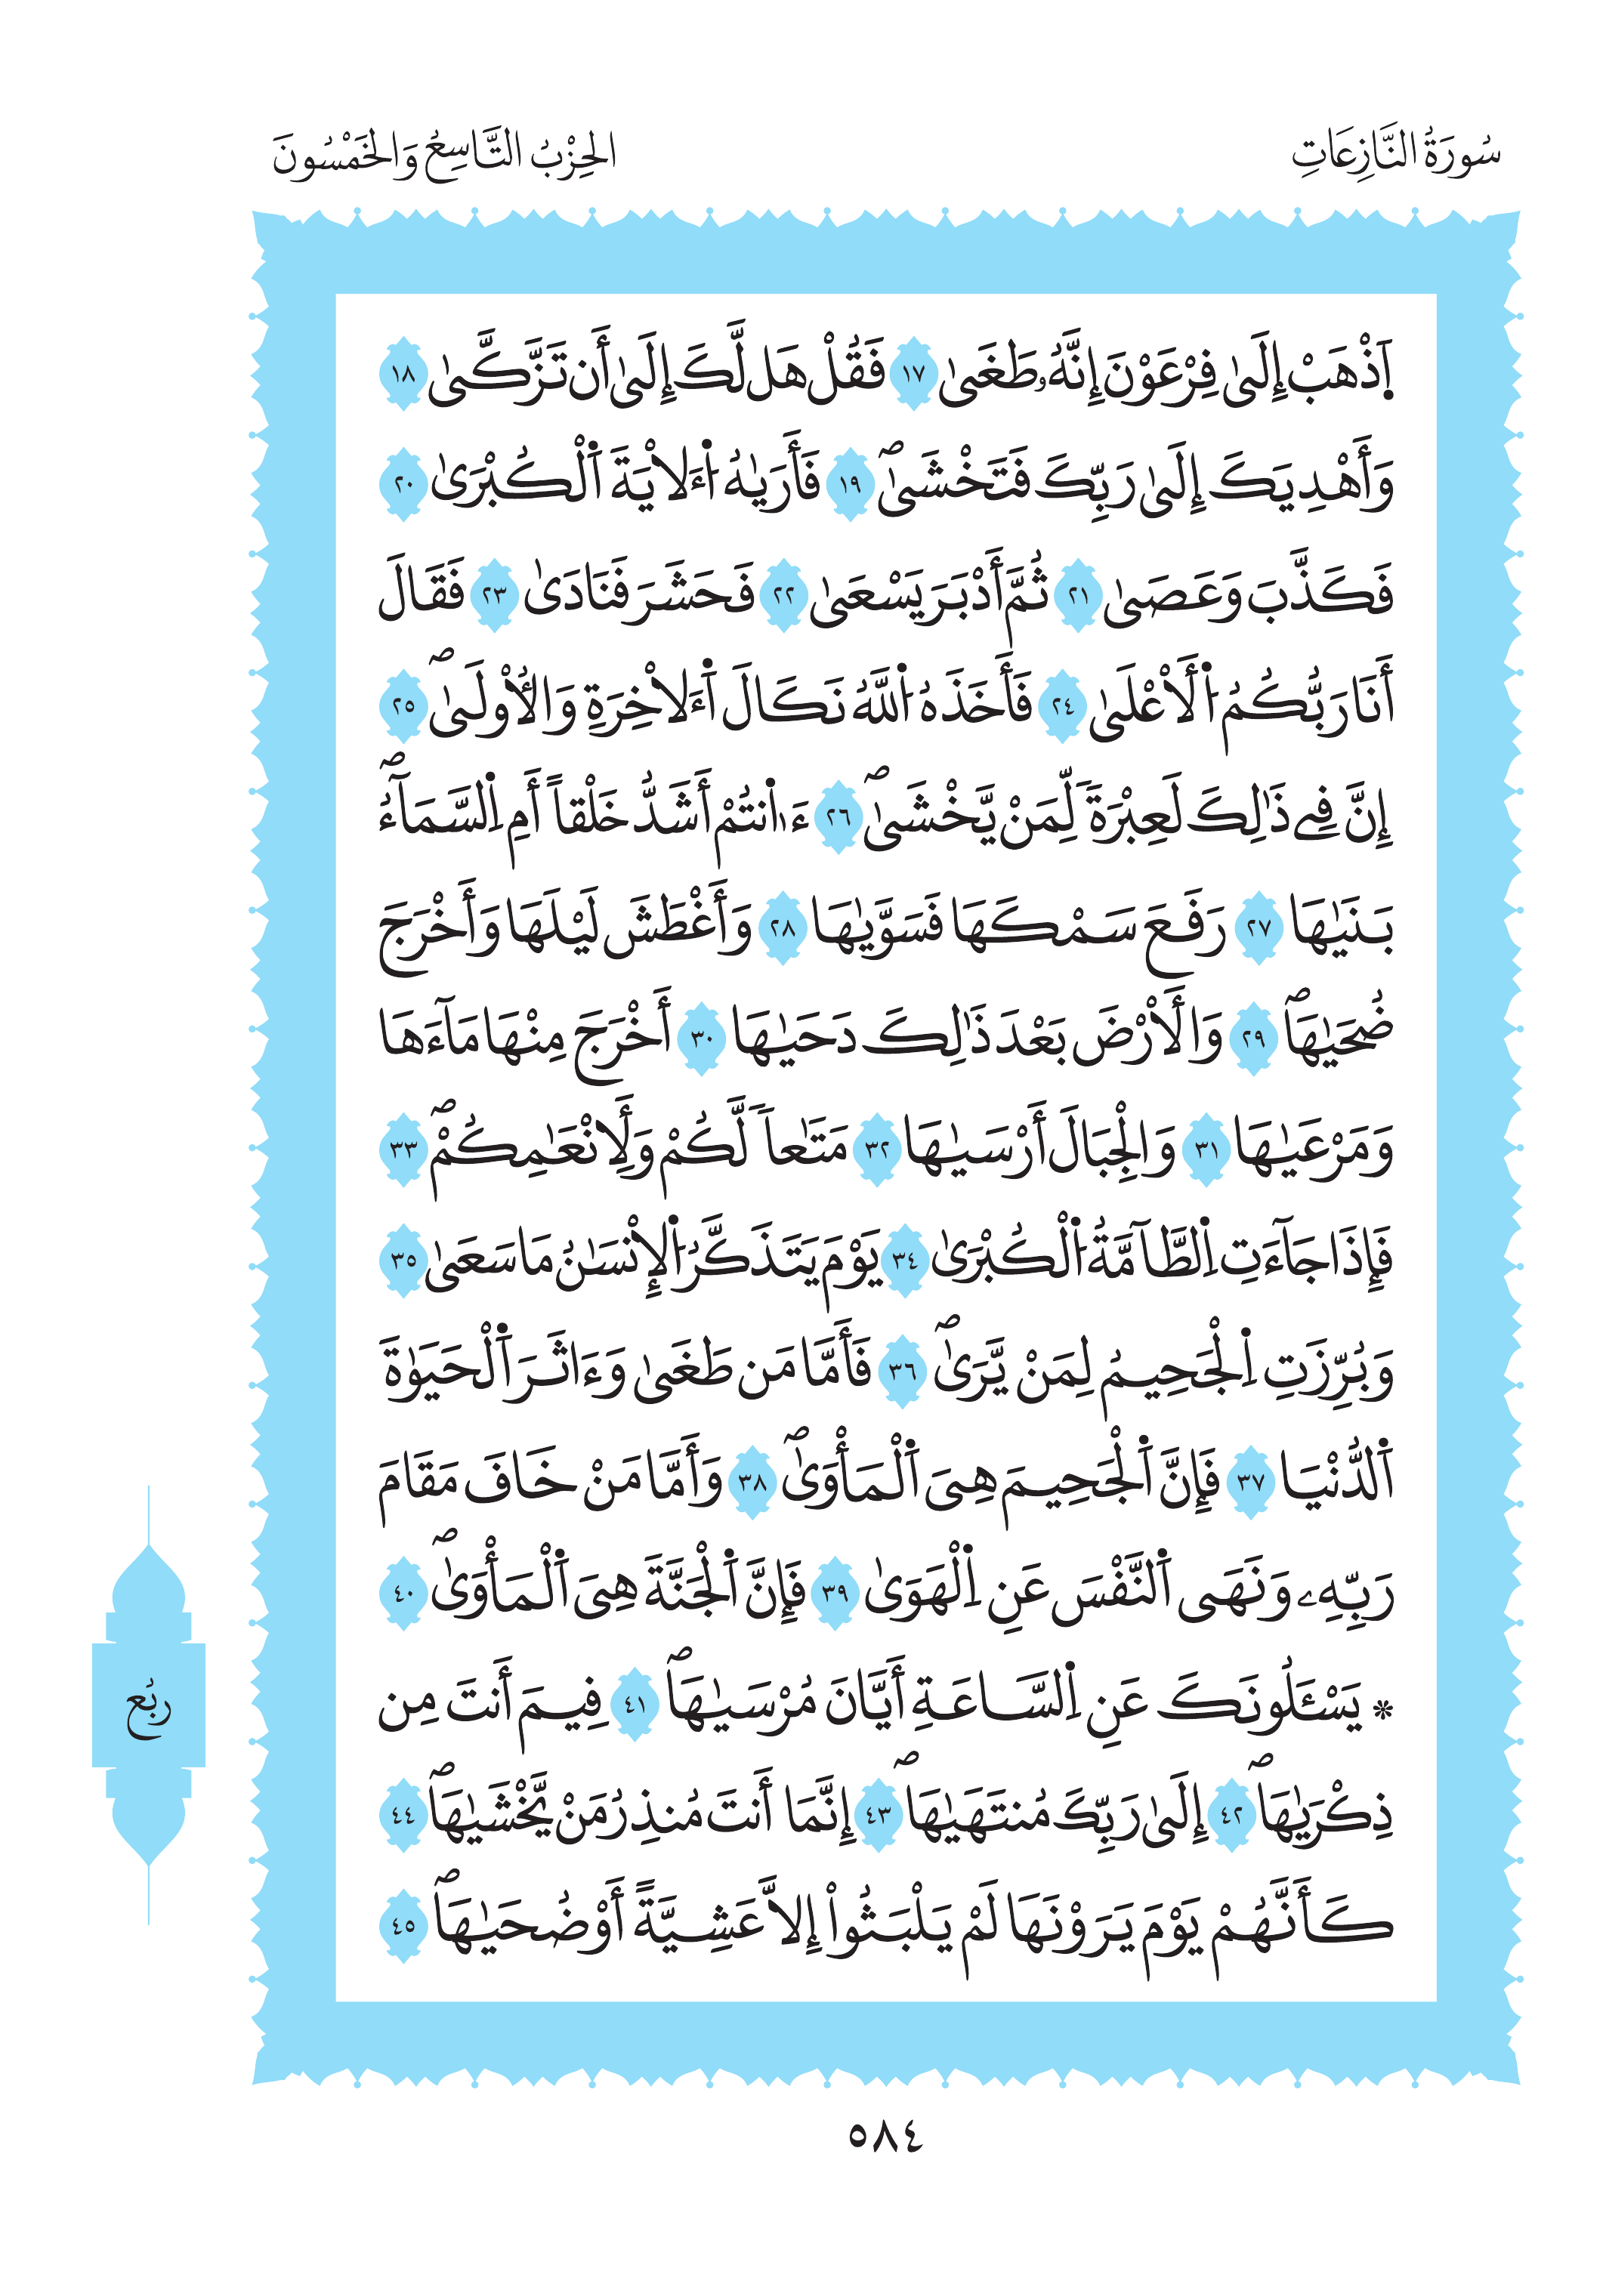 سُورَةُ النَّازِعَاتِ
الحِزْبُ التَّاسِعُ وَالخَمْسُونَ
اَ۪ذْهَبْ إِلَىٰ فِرْعَوْنَ إِنَّهُۥ طَغَىٰ ١٧ فَقُلْ هَل لَّكَ إِلَىٰ أَن تَزَّكَّىٰ ١٨
وَأَهْدِيَكَ إِلَىٰ رَبِّكَ فَتَخْشَىٰۖ ١٩ فَأَرَيٰهُ اُ۬ءَلَايْةَ اَ۬لْكُبْرَىٰ ٢٠
فَكَذَّبَ وَعَصَىٰ ٢١ ثُمَّ أَدْبَرَ يَسْعَىٰ ٢٢ فَحَشَرَ فَنَادَىٰ ٢٣ فَقَالَ
أَنَا رَبُّكُمُ اُ۬لَاعْلَىٰ ٢٤ فَأَخَذَهُ اُ۬للَّهُ نَكَالَ اَ۬ءَلَاخِرَةِ وَالُاولَىٰۖ ٢٥
إِنَّ فِے ذَٰلِكَ لَعِبْرَةٗ لِّمَنْ يَّخْشَىٰۖ ٢٦ ءَا۬نتُمْ أَشَدُّ خَلْقاً أَمِ اِ۬لسَّمَآءُۖ
بَنَيٰهَا ٢٧ رَفَعَ سَمْكَهَا فَسَوَّيٰهَا ٢٨ وَأَغْطَشَ لَيْلَهَا وَأَخْرَجَ
ضُحَيٰهَاۖ ٢٩ وَالَارْضَ بَعْدَ ذَٰلِكَ دَحَيٰهَا ٣٠ أَخْرَجَ مِنْهَا مَآءَهَا
وَمَرْعَيٰهَا ٣١ وَالْجِبَالَ أَرْسَيٰهَا ٣٢ مَتَٰعاٗ لَّكُمْ وَلِأَنْعَٰمِكُمْۖ ٣٣
فَإِذَا جَآءَتِ اِ۬لطَّآمَّةُ اُ۬لْكُبْرَىٰ ٣٤ يَوْمَ يَتَذَكَّرُ اُ۬لْإِنسَٰنُ مَا سَعَىٰ ٣٥
وَبُرِّزَتِ اِ۬لْجَحِيمُ لِمَنْ يَّرَىٰۖ ٣٦ فَأَمَّا مَن طَغَىٰ وَءَاثَرَ اَ۬لْحَيَوٰةَ
اَ۬لدُّنْيَا ٣٧ فَإِنَّ اَ۬لْجَحِيمَ هِىَ اَ۬لْمَأْوَىٰۖ ٣٨ وَأَمَّا مَنْ خَافَ مَقَامَ
رَبِّهِۦ وَنَهَى اَ۬لنَّفْسَ عَنِ اِ۬لْهَوَىٰ ٣٩ فَإِنَّ اَ۬لْجَنَّةَ هِىَ اَ۬لْمَأْوَىٰۖ ٤٠
* يَسْـَٔلُونَكَ عَنِ اِ۬لسَّاعَةِ أَيَّانَ مُرْسَيٰهَاۖ ٤١ فِيمَ أَنتَ مِن
ذِكْرَيٰهَاۖ ٤٢ إِلَىٰ رَبِّكَ مُنتَهَيٰهَاۖ ٤٣ إِنَّمَا أَنتَ مُنذِرُ مَنْ يَّخْشَيٰهَاۖ ٤٤
كَأَنَّهُمْ يَوْمَ يَرَوْنَهَا لَمْ يَلْبَثُواْ إِلَّا عَشِيَّةً أَوْ ضُحَيٰهَاۖ ٤٥
ربُع
٥٨٤